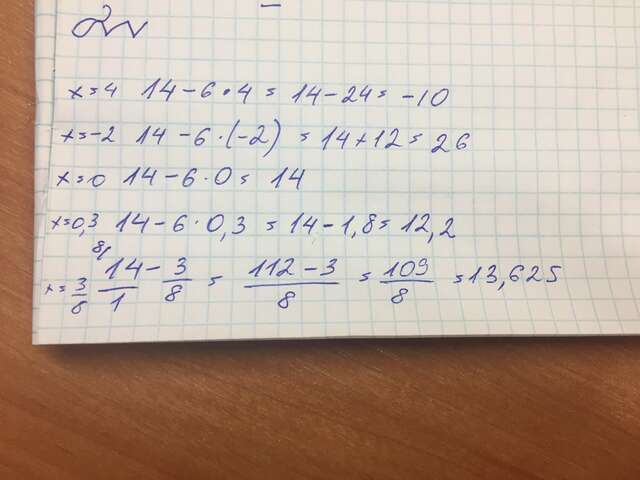 x=4 14-6·4=14-24=-10
x=-2 14-6·(-2)=14+12=26
x=0 14-6·0=14
x=0,3 14-6·0,3=14-1,8=12,2
x=3/8 8) 14/1 - 3/8 = 112-3/8 = 109/8 =13,625